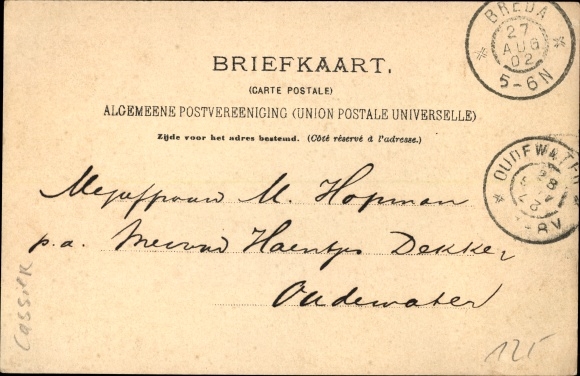 BREDA
27
AUG
02
5-6N
BRIEFKAART.
(CARTE POSTALE)
ALGEMEENE POSTVEREENIGING (UNION POSTALE UNIVERSELLE)
Zijde voor het adres bestemd. (Côté réservé à l'adresse.)
OUDEWATER
Mejuffrouw M. Hopman
p.a. Mevrouw Haentjes Dekker
Oudewater
Cassiek
125